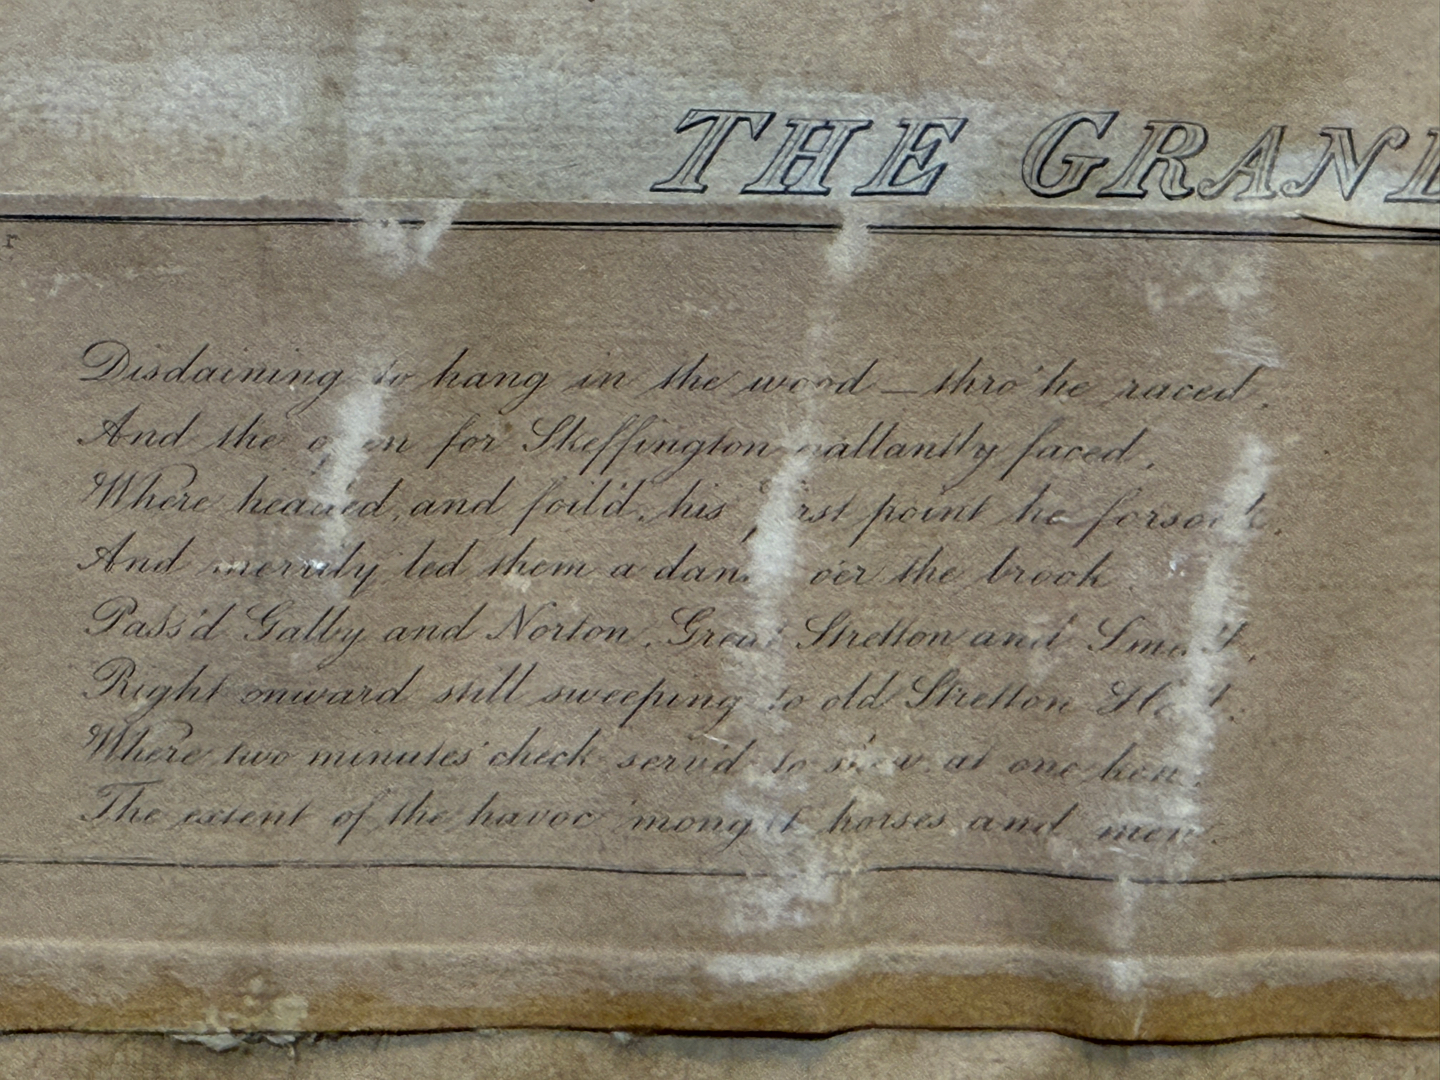 THE GRAND
r
Disdaining to hang in the wood — thro' he raced,
And the open for Skeffington gallantly faced,
Where headed, and foil'd, his first point he forsook,
And merrily led them a dance o'er the brook.
Pass'd Galby and Norton, Great Stretton and Small,
Right onward still sweeping to old Stretton Hall:
Where two minutes' check serv'd to shew at one ken,
The extent of the havoc 'mongst horses and men.